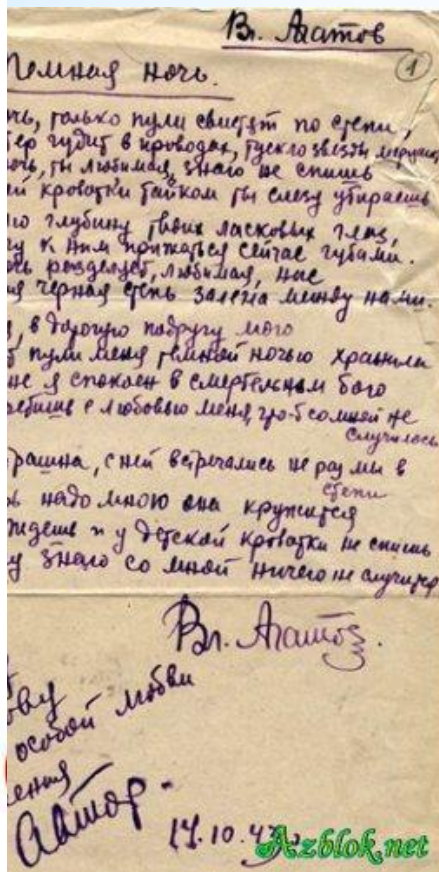 Вл. Агатов
1
Темная ночь.
чь, только пули свистят по степи,
тер гудит в проводах, тускло звезды мерцают
ночь, ты любимая, знаю не спишь
ой кроватки тайком ты слезу утираешь
лю глубину твоих ласковых глаз,
чу к ним прижаться сейчас губами.
чь разделяет, любимая, нас
ая черная степь залегла между нами.
я, в дорогую подругу мою
пули меня темной ночью хранила
мне я спокоен в смертельном бою
с любовью меня, что-б со мной не
случилось
рашна, с ней встречались не раз мы в
степи
надо мною она кружится
ждешь и у детской кроватки не спишь
му знаю со мной ничего не случится
Вл. Агатов.
ову
особой любви
ения
Автор.
14.10.43
Azblok.net